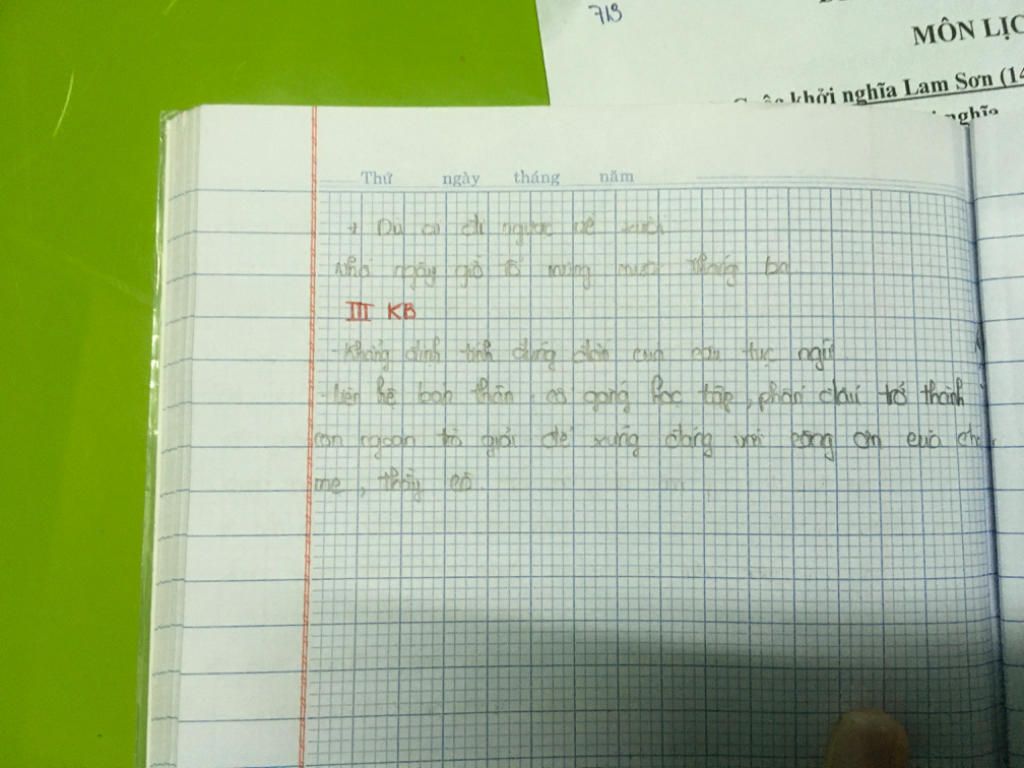 719
MÔN LỊC
khởi nghĩa Lam Sơn (14
nghĩa
Thứ ngày tháng năm
+ Dù ai đi ngược về xuôi
Nhớ ngày giỗ tổ mùng mười tháng ba
III KB
- Khẳng định tính đúng đắn của câu tục ngữ
- Liên hệ bản thân, cố gắng học tập, phấn đấu trở thành
con ngoan trò giỏi để xứng đáng với công ơn của cha
mẹ, thầy cô.